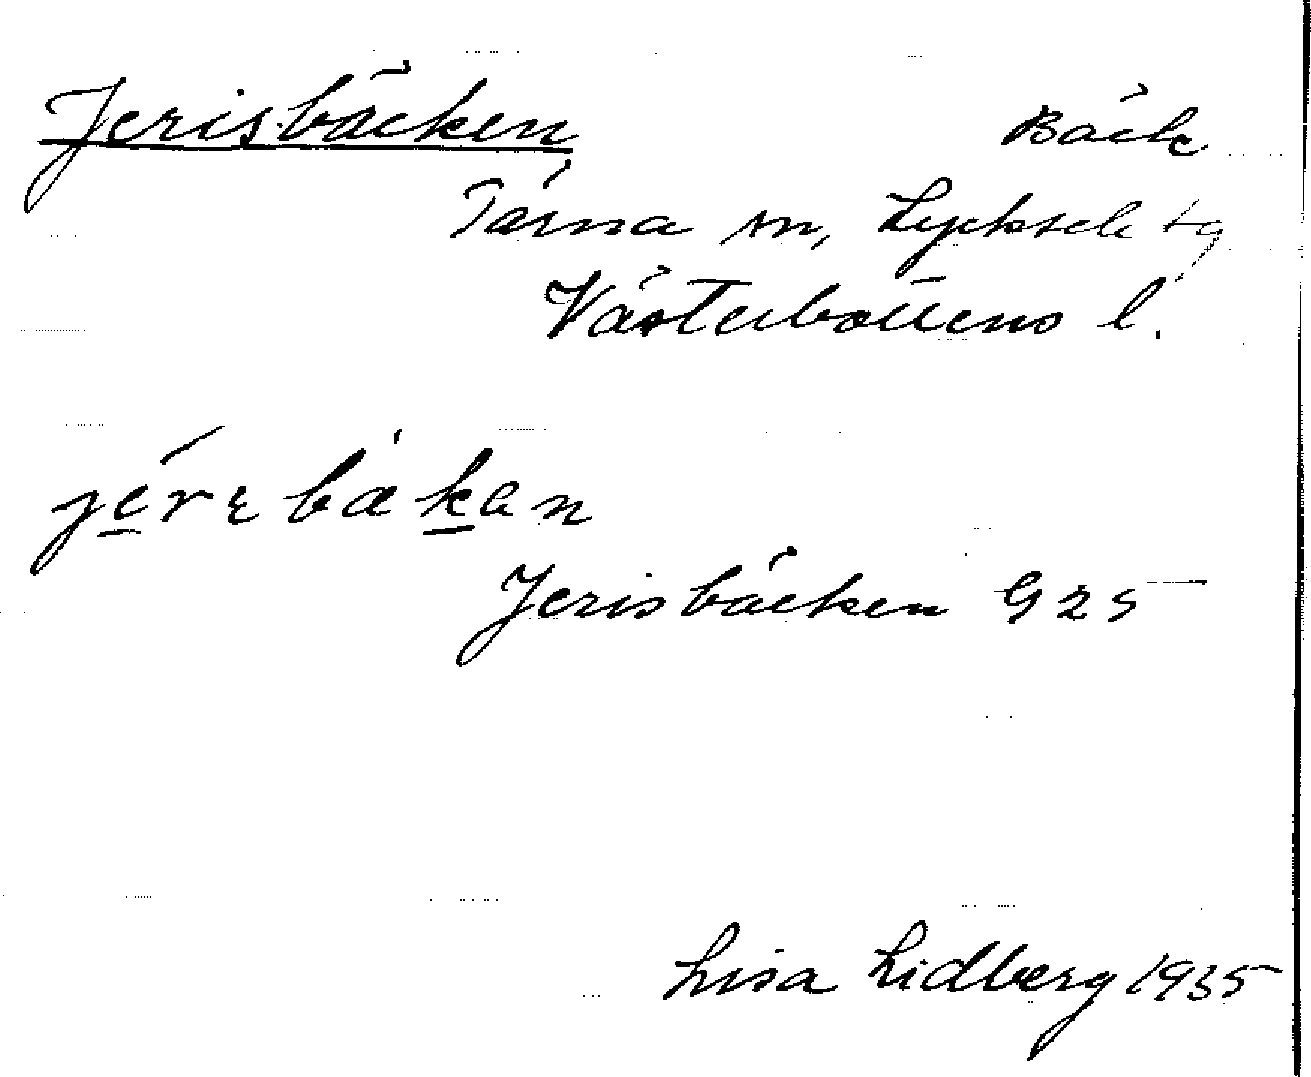 Jerisbäcken Bäck
Tärna sn, Lycksele tg
Västerbottens l.
jérɛbækan
Jerisbäcken G25
Lisa Lidberg 1935